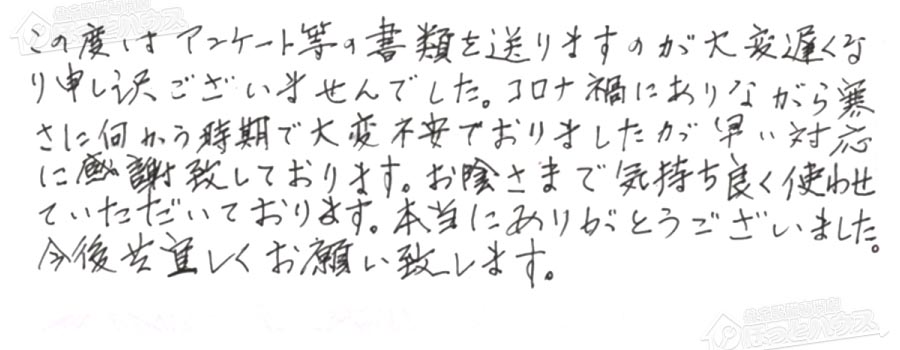 この度はアンケート等の書類を送りますのが大変遅くな
り申し訳ございませんでした。コロナ禍にありながら寒
さに向かう時期で大変不安でおりましたが早い対応
に感謝致しております。お陰さまで気持ち良く使わせ
ていただいております。本当にありがとうございました。
今後共宜しくお願い致します。
ほっとハウス
ほっとハウス